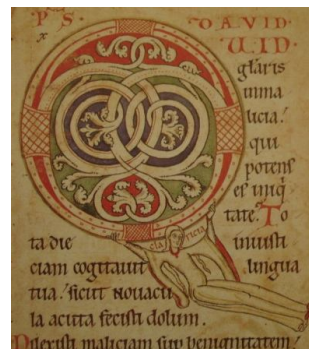 PS. DAVID.
UID
glaris
in ma
licia.'
qui
potens
es iniq
tate. To
ta die iniusti
ciam cogitauit lingua
tua.' sicut nouacu
la acuta fecisti dolum.
Dilexisti maliciam sup benignitatem.'